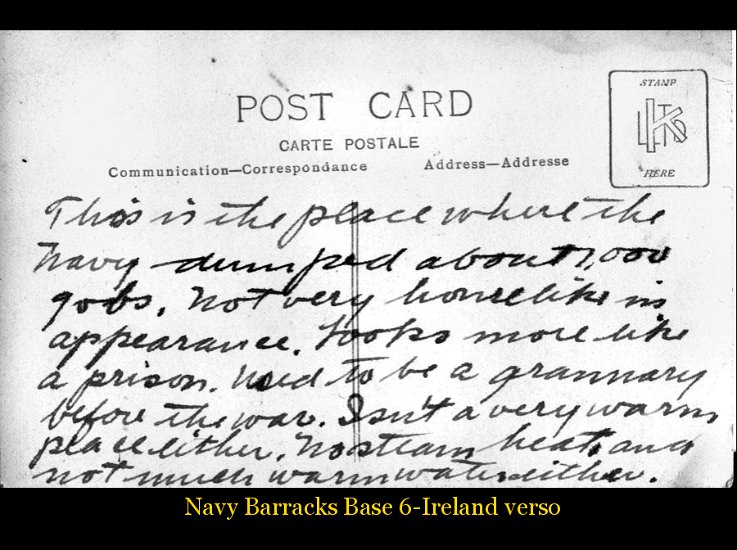 POST CARD
STAMP
HERE
CARTE POSTALE
Communication—Correspondance
Address—Addresse
This is the place where the
Navy dumped about 1,000
gobs. Not very homelike in
appearance. Looks more like
a prison. Used to be a grannary
before the war. Isn't a very warm
place either. No steam heat, and
not much warm water either.
Navy Barracks Base 6-Ireland verso